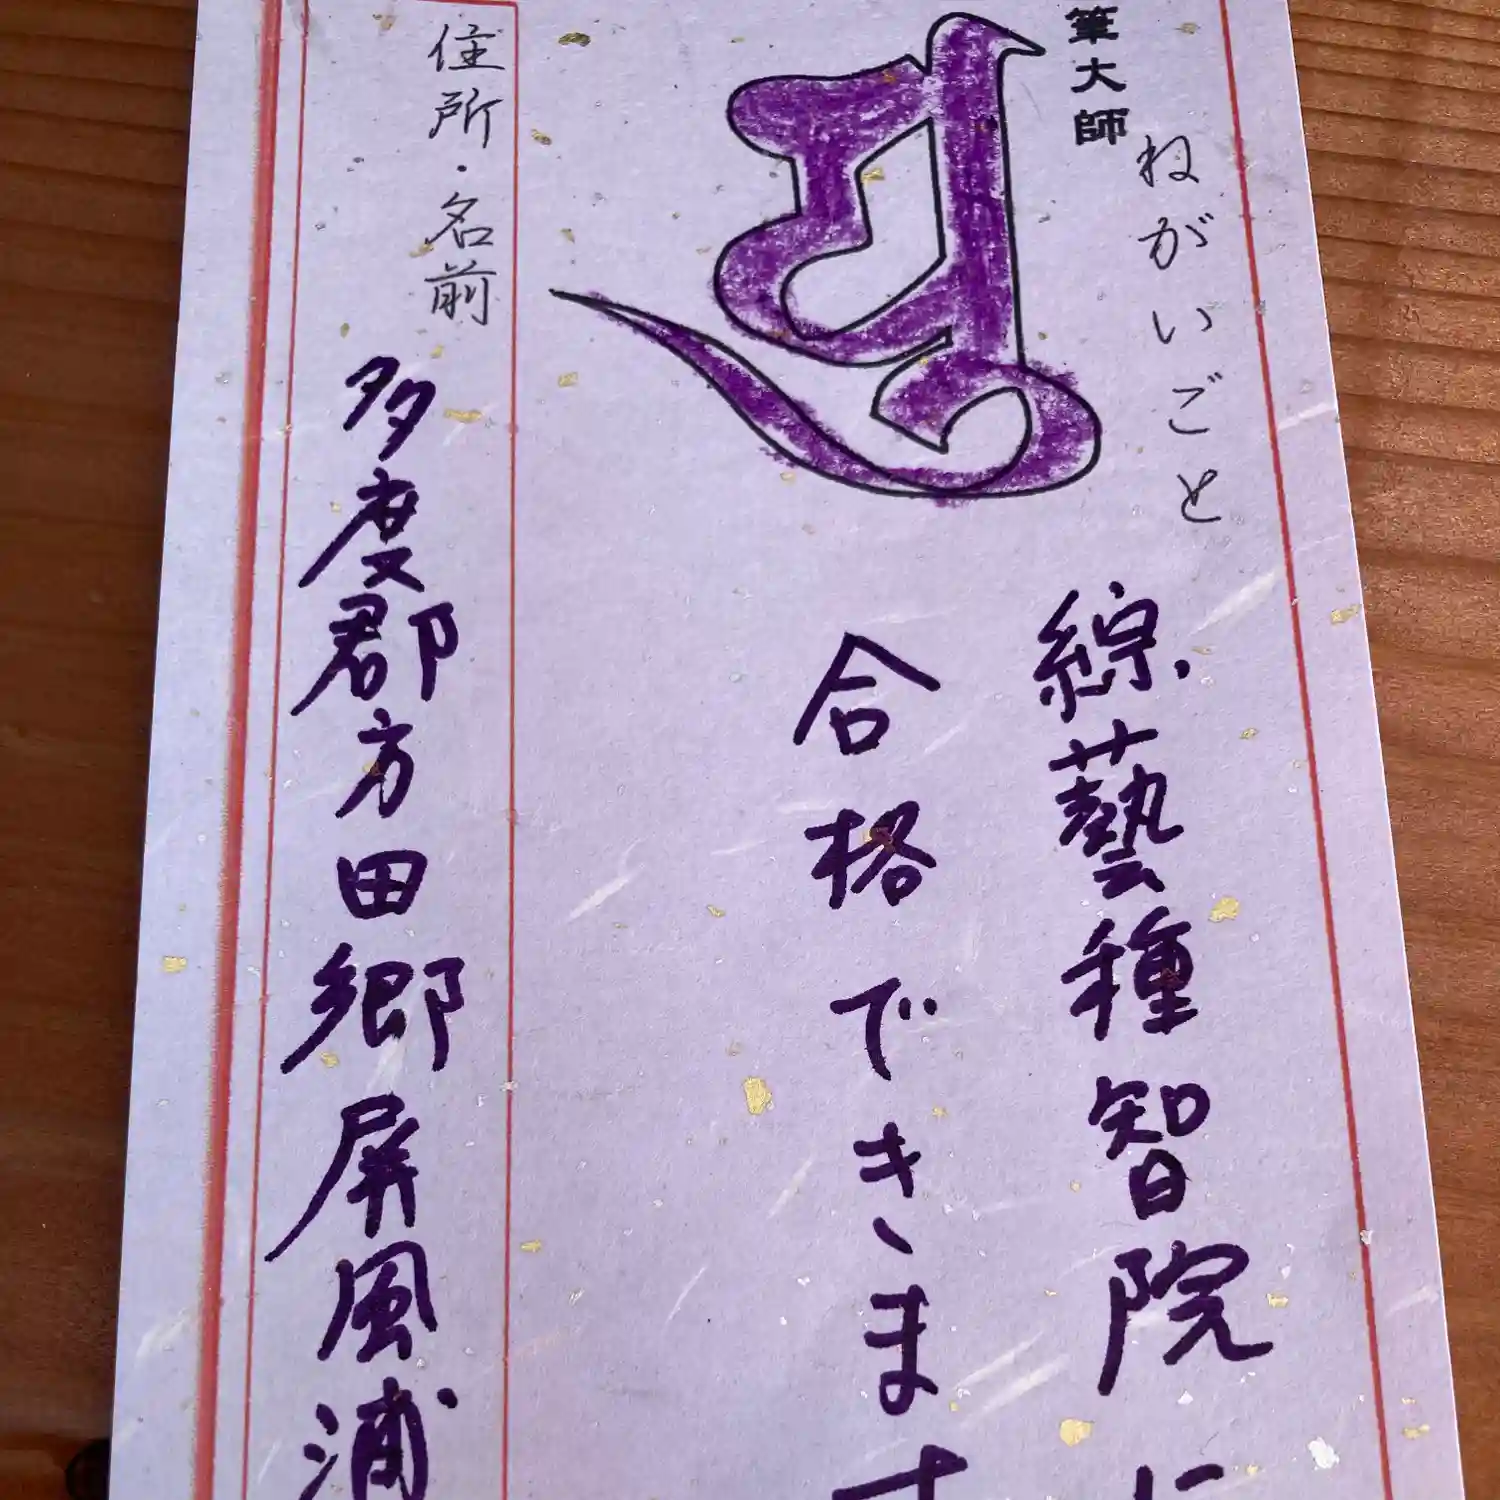 筆大師
ねがいごと
綜藝種智院に
合格できます
住所・名前
多度郡方田郷屏風浦